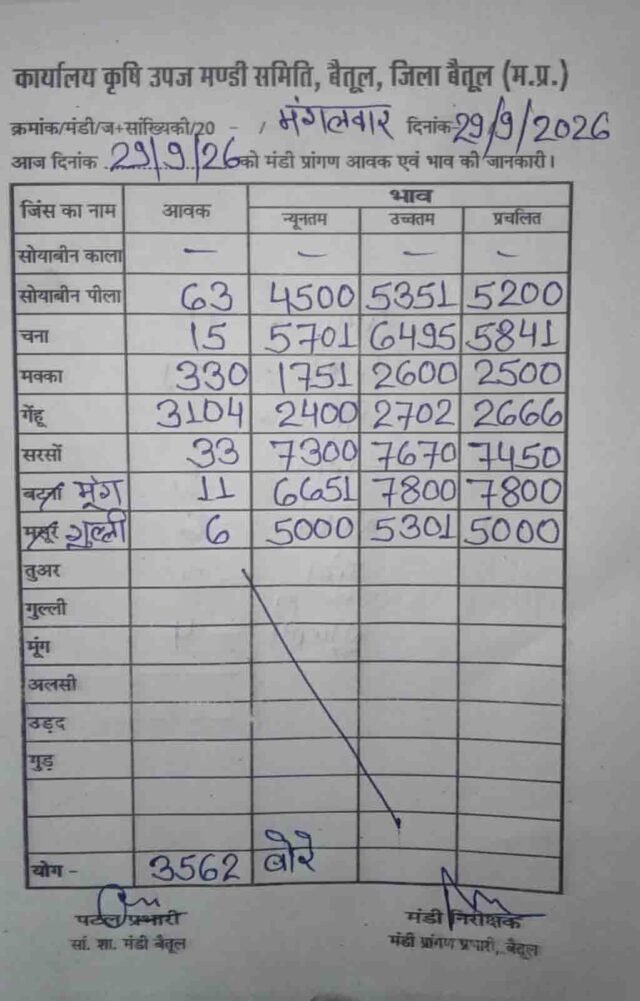 कार्यालय कृषि उपज मण्डी समिति, बैतूल, जिला बैतूल (म.प्र.)
क्रमांक/मंडी/ज+सांख्यिकी/20 - / मंगलवार दिनांक 29/9/2026
आज दिनांक 29/9/26 को मंडी प्रांगण आवक एवं भाव की जानकारी।
जिंस का नाम आवक भाव
न्यूनतम उच्चतम प्रचलित
सोयाबीन काला - - - -
सोयाबीन पीला 63 4500 5351 5200
चना 15 5701 6495 5841
मक्का 330 1751 2600 2500
गेंहू 3104 2400 2702 2666
सरसों 33 7300 7670 7450
बटना मूंग 11 6651 7800 7800
मसूर गुल्ली 6 5000 5301 5000
तुअर
गुल्ली
मूंग
अलसी
उड़द
गुड़
योग - 3562 बोरे
पटल प्रभारी मंडी निरीक्षक
सां. शा. मंडी बैतूल मंडी प्रांगण प्रभारी, बैतूल